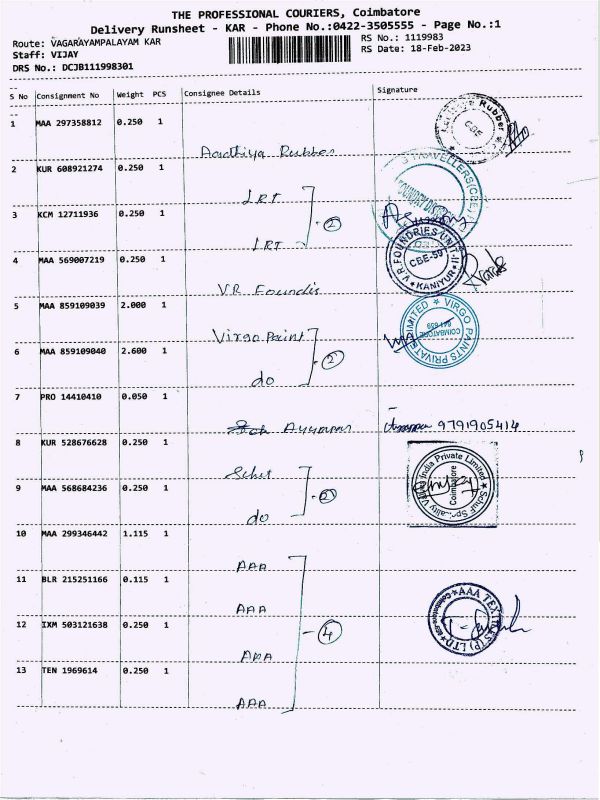 THE PROFESSIONAL COURIERS, Coimbatore
Delivery Runsheet - KAR - Phone No.:0422-3505555 - Page No.:1
Route: VAGARAYAMPALAYAM KAR
RS No.: 1119983
Staff: VIJAY
RS Date: 18-Feb-2023
DRS No.: DCJB111998301
S No Consignment No Weight PCS Consignee Details Signature
1 MAA 297358812 0.250 1
Rubber
CBE
Aadhiya Rubber
2 KUR 608921274 0.250 1
TRAVELLERS(CBE)
FOUNDRY DIVISION
LRT
3 KCM 12711936 0.250 1
2
LRT
4 MAA 569007219 0.250 1
V.R.FOUNDRIES-UNIT-II
CBE-59
KANIYUR
V.R Foundis
5 MAA 859109039 2.000 1
VIRGO PAINTS PRIVATE LIMITED
COIMBATORE
641 659
Virgo Paint
6 MAA 859109040 2.600 1
2
do
7 PRO 14410410 0.050 1
Ayyappas
9791905414
8 KUR 528676628 0.250 1
India Private Limited
Schur
Coimbatore
Schut
9 MAA 568684236 0.250 1
2
do
10 MAA 299346442 1.115 1
AAA
11 BLR 215251166 0.115 1
AAA TEX
(P) LTD
AAA
12 IXM 503121638 0.250 1
4
AAA
13 TEN 1969614 0.250 1
AAA